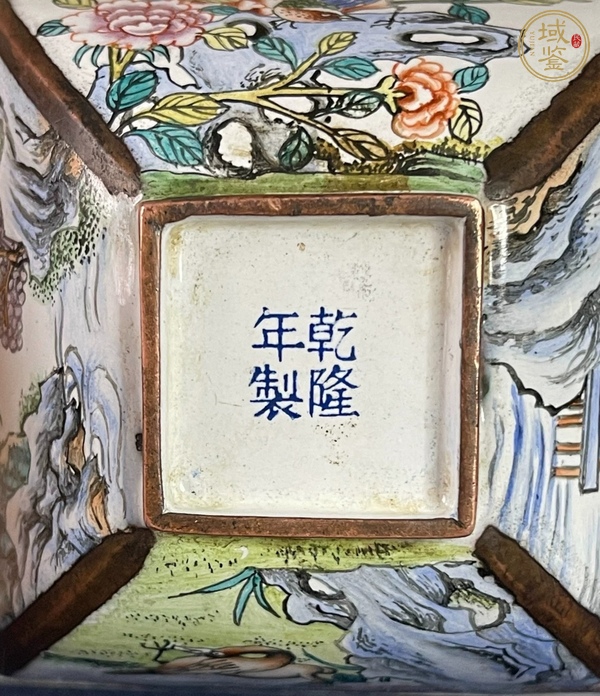 乾隆
年製
域鉴